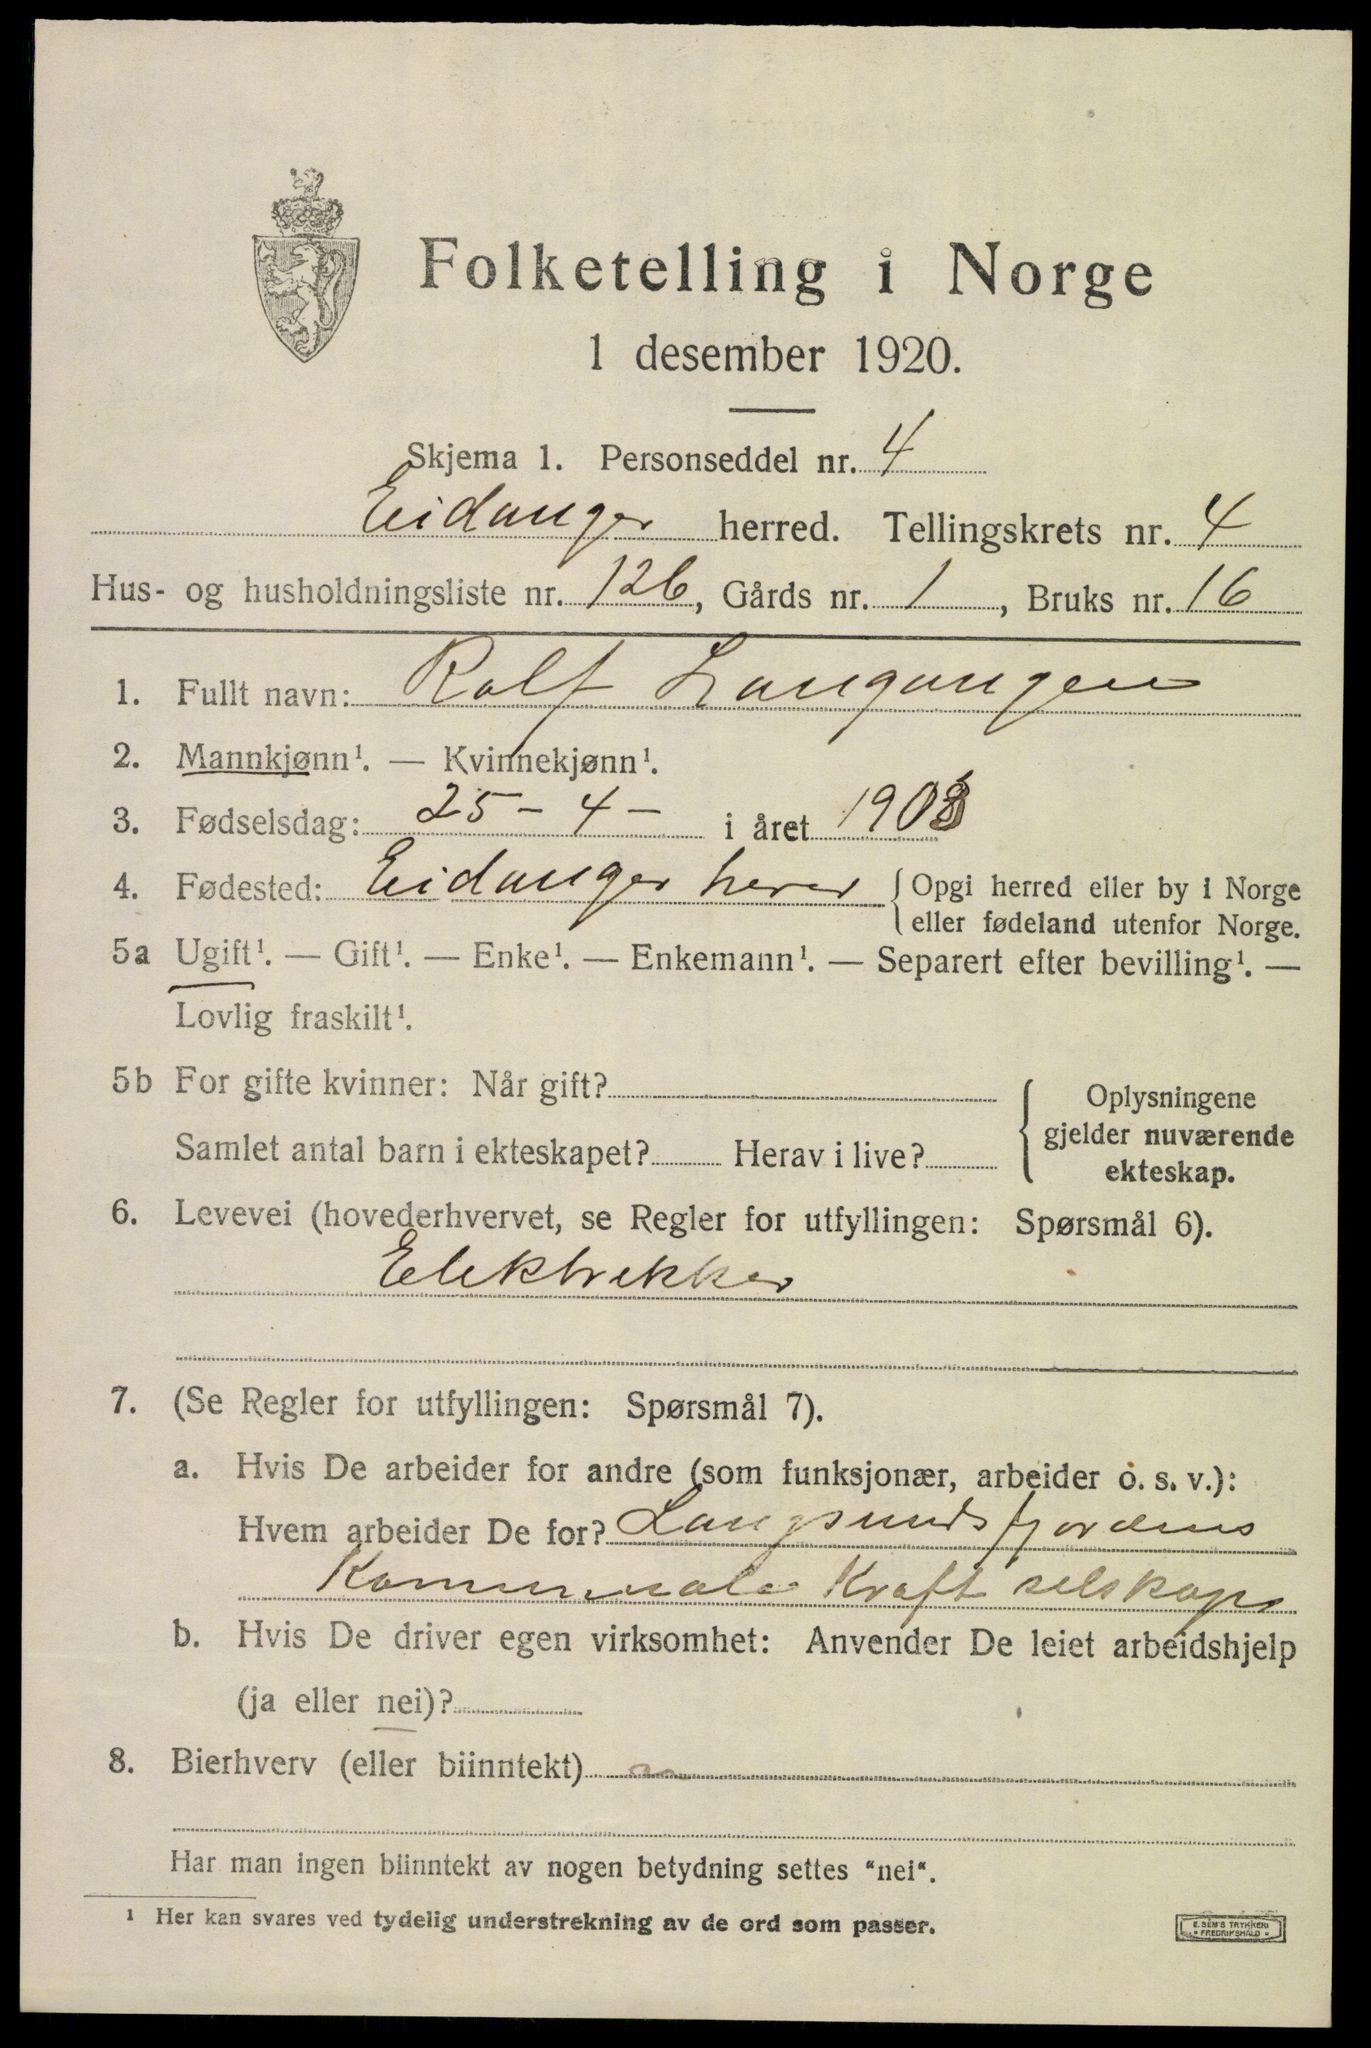 Folketelling i Norge
1 desember 1920.
Skjema 1. Personseddel nr. 4
Eidanger herred. Tellingskrets nr. 4
Hus- og husholdningsliste nr. 126, Gårds nr. 1, Bruks nr. 16
1. Fullt navn: Rolf Langangen
2. Mannkjønn¹. — Kvinnekjønn¹.
3. Fødselsdag: 25 - 4 - i året 1903
4. Fødested: Eidanger herer { Opgi herred eller by i Norge
eller fødeland utenfor Norge.
5a Ugift¹. — Gift¹. — Enke¹. — Enkemann¹. — Separert efter bevilling¹. —
Lovlig fraskilt¹.
5b For gifte kvinner: Når gift?
Samlet antal barn i ekteskapet? Herav i live?
Oplysningene
gjelder nuværende
ekteskap.
6. Levevei (hovederhvervet, se Regler for utfyllingen: Spørsmål 6).
Elektrikker
7. (Se Regler for utfyllingen: Spørsmål 7).
a. Hvis De arbeider for andre (som funksjonær, arbeider o. s. v.):
Hvem arbeider De for? Langsundsfjordens
Komunnale Kraft selskap
b. Hvis De driver egen virksomhet: Anvender De leiet arbeidshjelp
(ja eller nei)?
8. Bierhverv (eller biinntekt)
Har man ingen biinntekt av nogen betydning settes "nei".
¹ Her kan svares ved tydelig understrekning av de ord som passer.
E. SEM'S TRYKKERI
FREDRIKSHALD